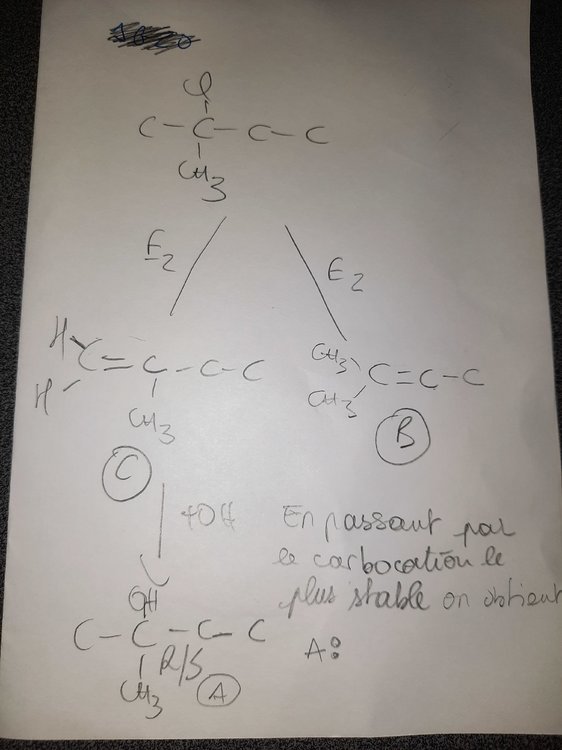 Cl
C - C - C - C
CH3
E2
E2
H
C = C - C - C
H
CH3
C
CH3
CH3
C = C - C
B
+OH
En passant par
le carbocation le
plus stable on obtient
A:
OH
C - C - C - C
R/S
CH3
A